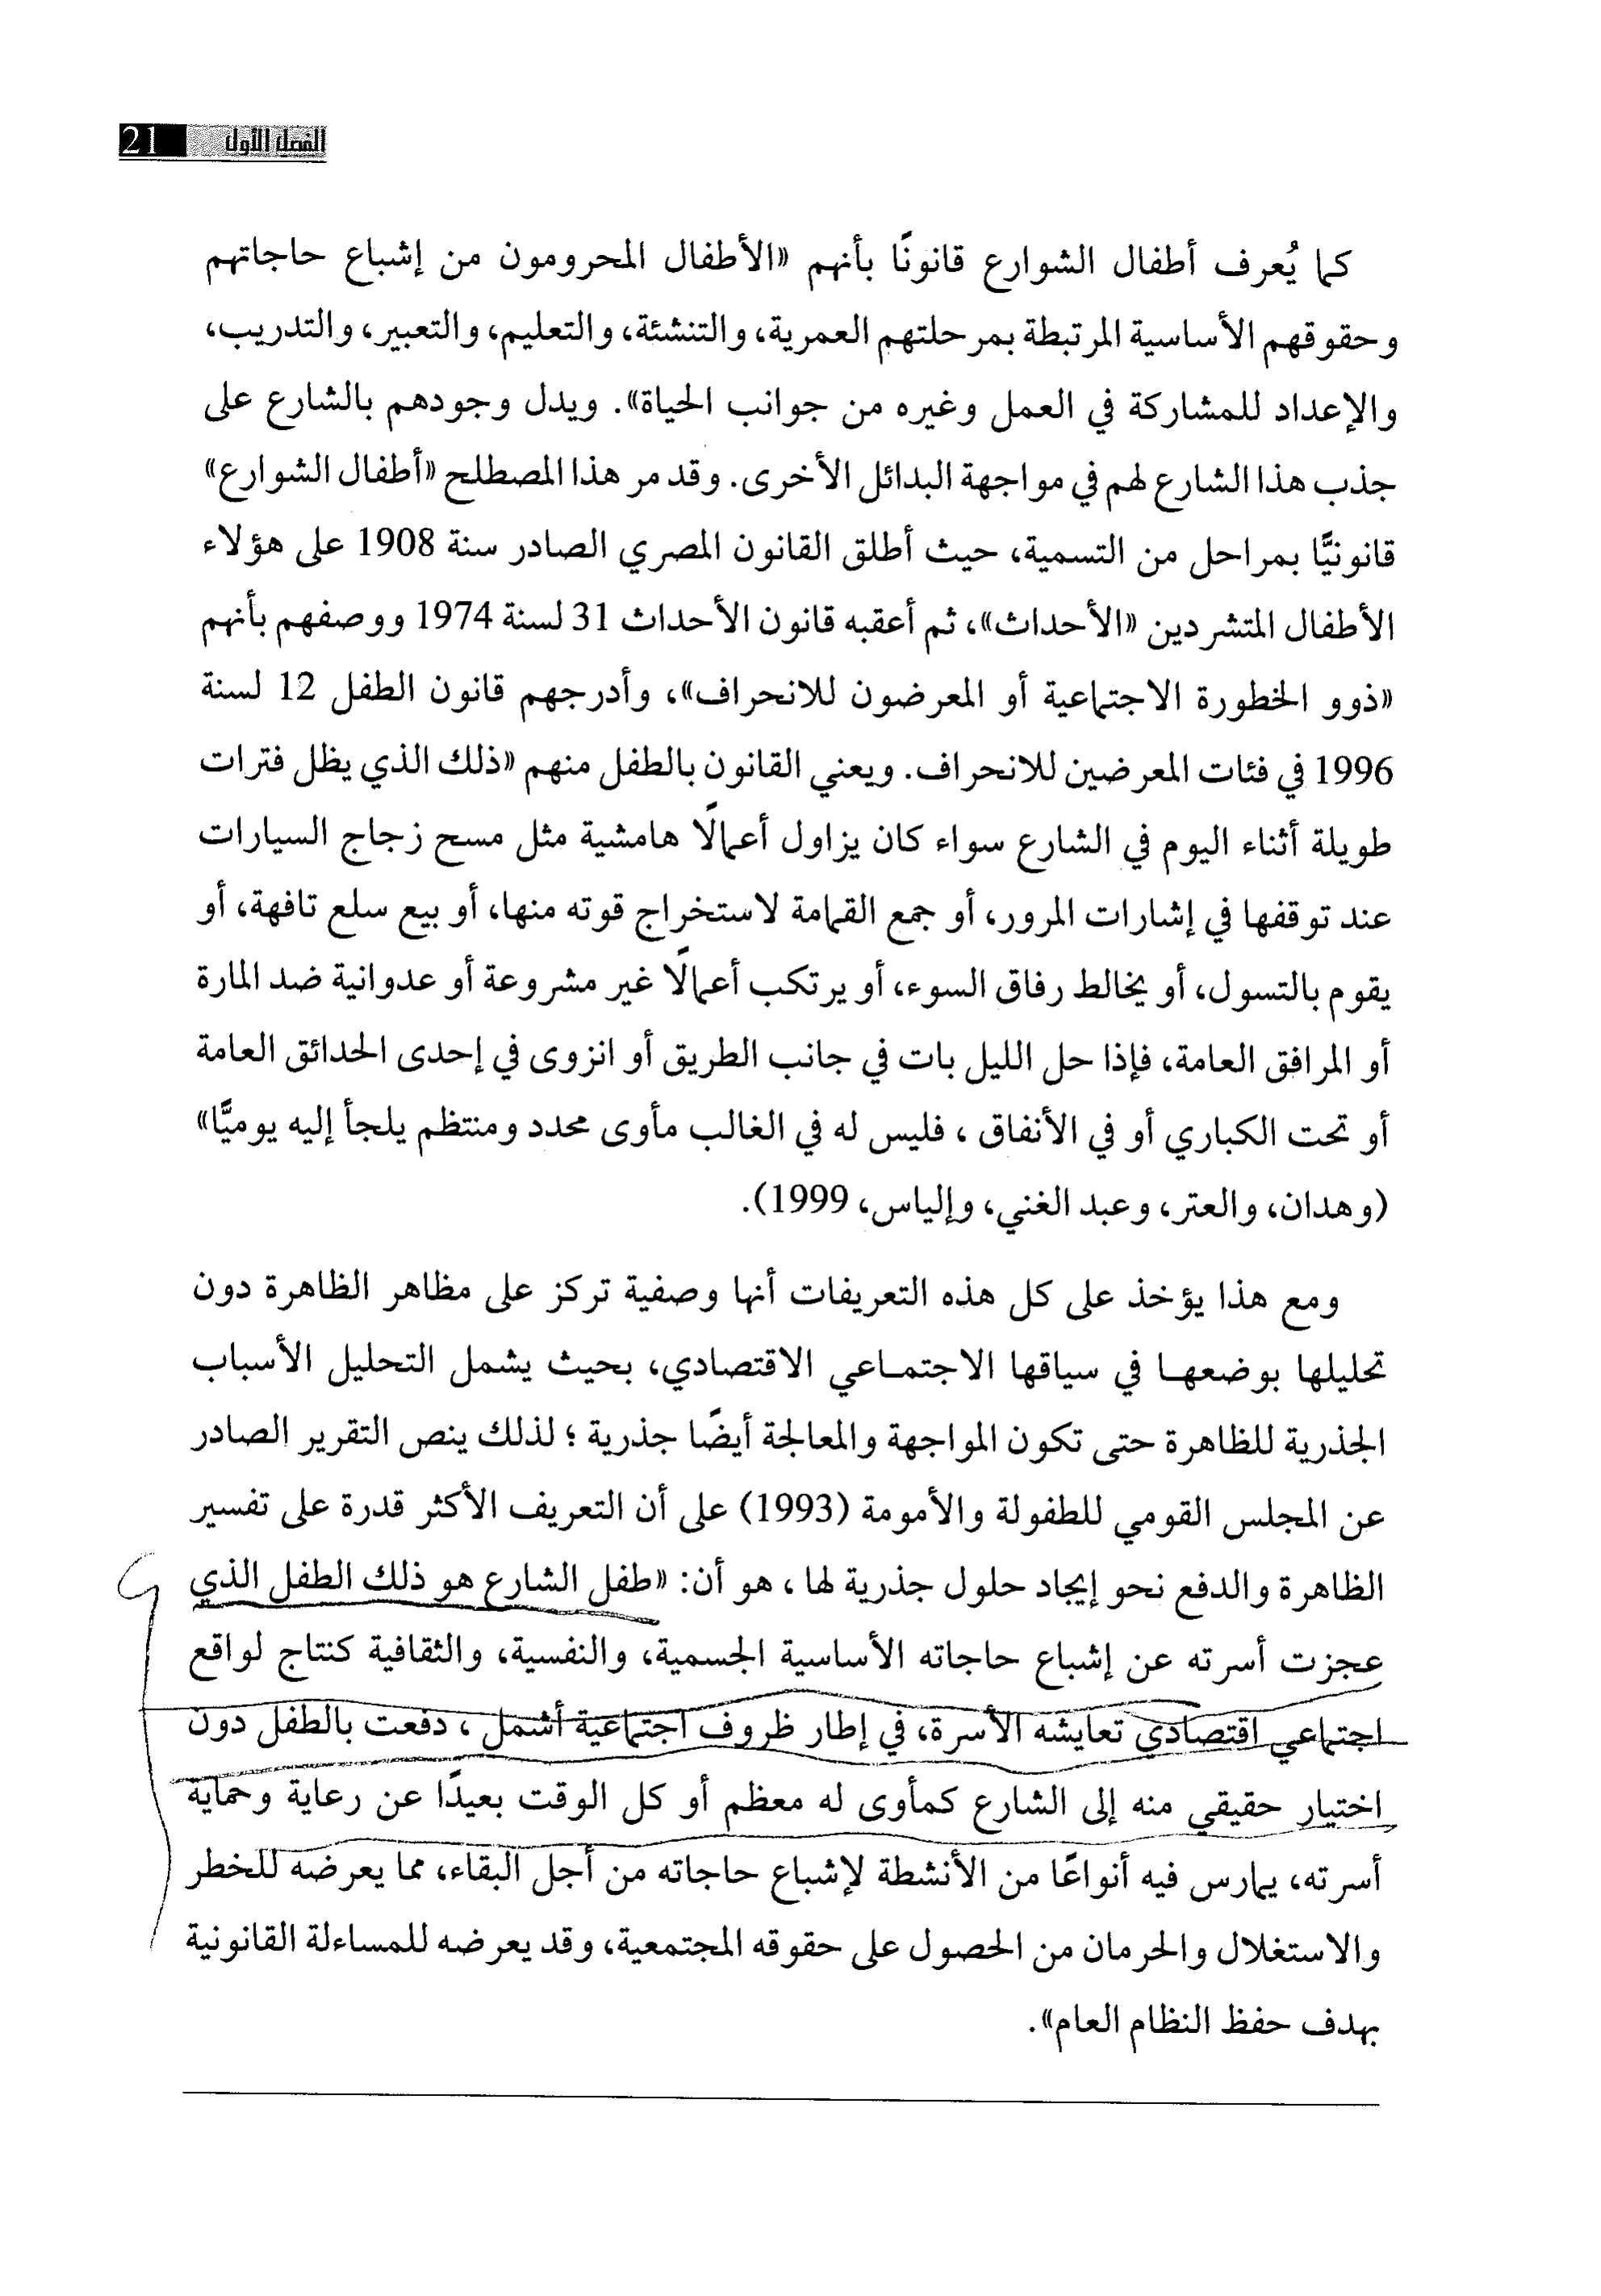 الفصل الأول 21
كما يُعرف أطفال الشوارع قانونًا بأنهم «الأطفال المحرومون من إشباع حاجاتهم
وحقوقهم الأساسية المرتبطة بمرحلتهم العمرية، والتنشئة، والتعليم، والتعبير، والتدريب،
والإعداد للمشاركة في العمل وغيره من جوانب الحياة». ويدل وجودهم بالشارع على
جذب هذا الشارع لهم في مواجهة البدائل الأخرى. وقد مر هذا المصطلح «أطفال الشوارع»
قانونيًّا بمراحل من التسمية، حيث أطلق القانون المصري الصادر سنة 1908 على هؤلاء
الأطفال المتشردين «الأحداث»، ثم أعقبه قانون الأحداث 31 لسنة 1974 ووصفهم بأنهم
«ذوو الخطورة الاجتماعية أو المعرضون للانحراف»، وأدرجهم قانون الطفل 12 لسنة
1996 في فئات المعرضين للانحراف. ويعني القانون بالطفل منهم «ذلك الذي يظل فترات
طويلة أثناء اليوم في الشارع سواء كان يزاول أعمالًا هامشية مثل مسح زجاج السيارات
عند توقفها في إشارات المرور، أو جمع القمامة لاستخراج قوته منها، أو بيع سلع تافهة، أو
يقوم بالتسول، أو يخالط رفاق السوء، أو يرتكب أعمالًا غير مشروعة أو عدوانية ضد المارة
أو المرافق العامة، فإذا حل الليل بات في جانب الطريق أو انزوى في إحدى الحدائق العامة
أو تحت الكباري أو في الأنفاق ، فليس له في الغالب مأوى محدد ومنتظم يلجأ إليه يوميًّا»
(وهدان، والعتر، وعبد الغني، وإلياس، 1999).
ومع هذا يؤخذ على كل هذه التعريفات أنها وصفية تركز على مظاهر الظاهرة دون
تحليلها بوضعها في سياقها الاجتماعي الاقتصادي، بحيث يشمل التحليل الأسباب
الجذرية للظاهرة حتى تكون المواجهة والمعالجة أيضًا جذرية ؛ لذلك ينص التقرير الصادر
عن المجلس القومي للطفولة والأمومة (1993) على أن التعريف الأكثر قدرة على تفسير
الظاهرة والدفع نحو إيجاد حلول جذرية لها ، هو أن: «طفل الشارع هو ذلك الطفل الذي
عجزت أسرته عن إشباع حاجاته الأساسية الجسمية، والنفسية، والثقافية كنتاج لواقع
اجتماعي اقتصادي تعايشه الأسرة، في إطار ظروف اجتماعية أشمل ، دفعت بالطفل دون
اختيار حقيقي منه إلى الشارع كمأوى له معظم أو كل الوقت بعيدًا عن رعاية وحماية
أسرته، يمارس فيه أنواعًا من الأنشطة لإشباع حاجاته من أجل البقاء، مما يعرضه للخطر
والاستغلال والحرمان من الحصول على حقوقه المجتمعية، وقد يعرضه للمساءلة القانونية
بهدف حفظ النظام العام».